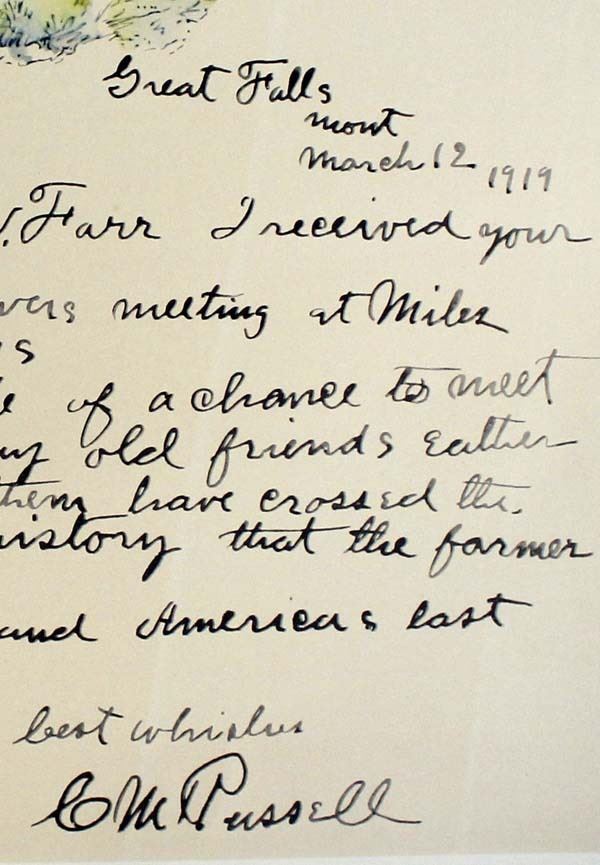 Great Falls
Mont
March 12 1919
Farr I received your
meeting at Miles
s
of a chance to meet
old friends
them have crossed the
history that the farmer
and Americas last
best whishes
C M Russell